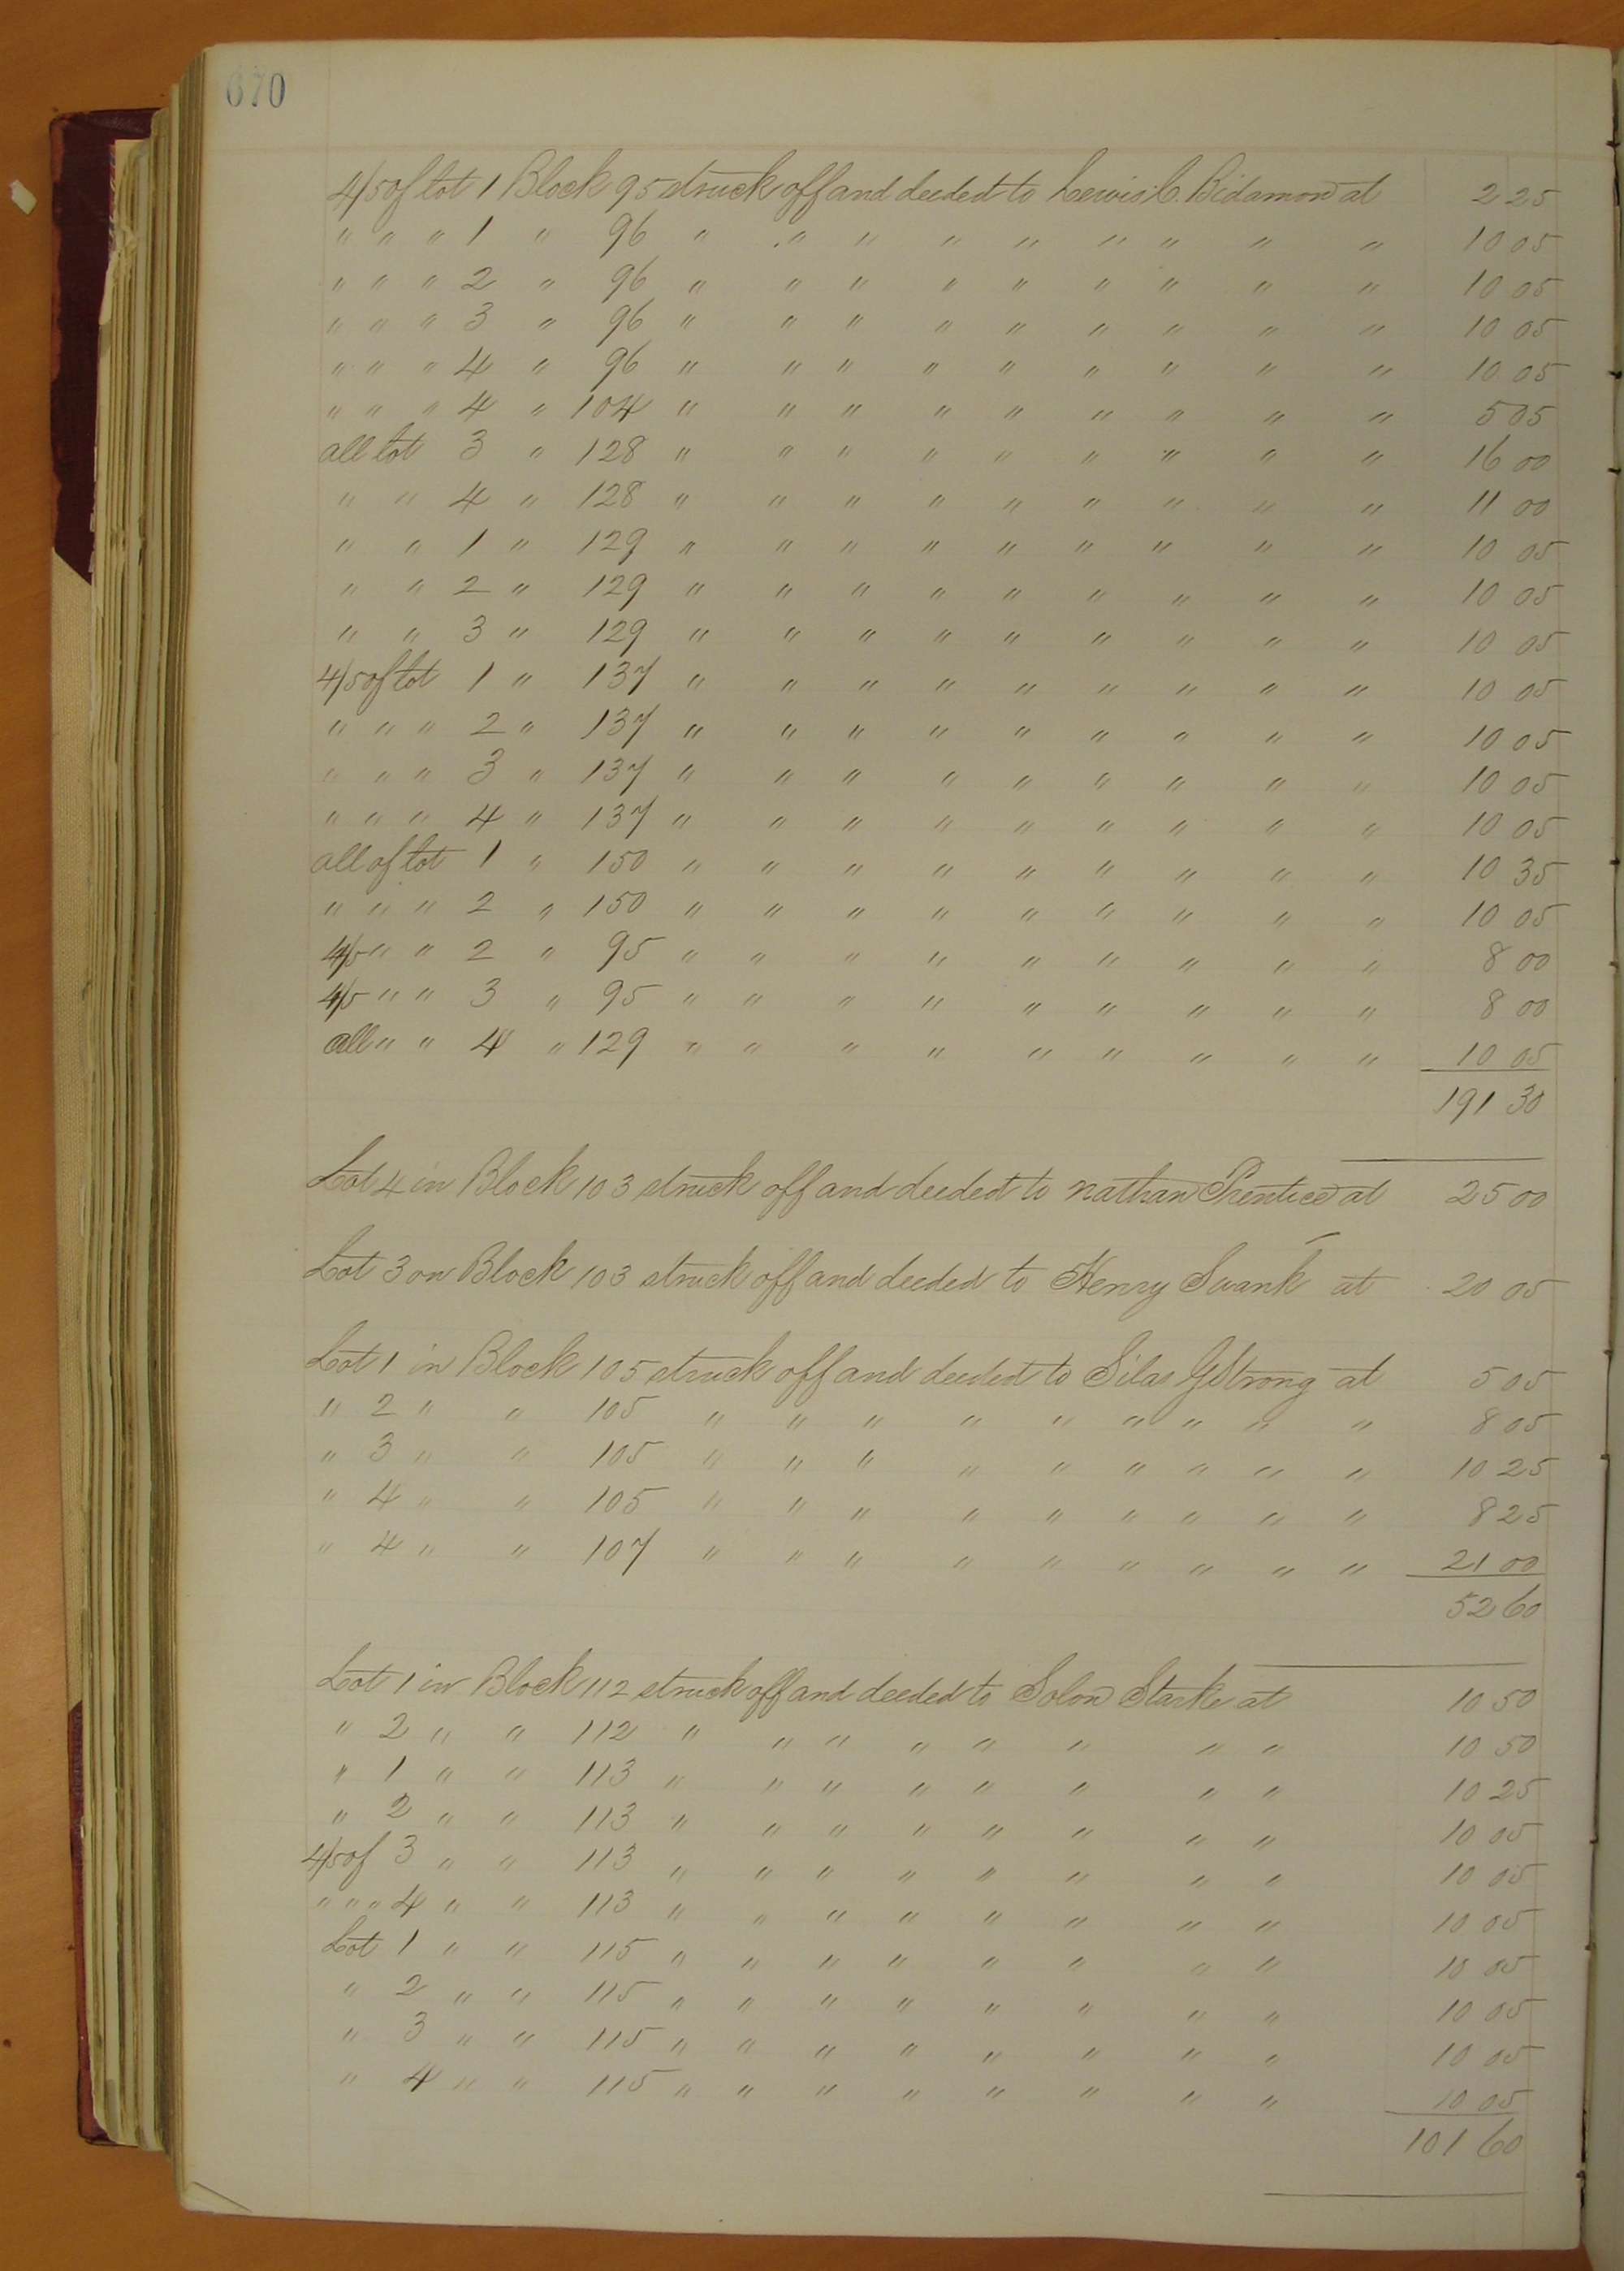 670
4/5 of lot 1 Block 95 struck off and deeded to Lewis C. Bidamon at 2 25
" " " 1 " 96 " " " " " " " " " 10 05
" " " 2 " 96 " " " " " " " " " 10 05
" " " 3 " 96 " " " " " " " " " 10 05
" " " 4 " 96 " " " " " " " " " 10 05
" " " 4 " 104 " " " " " " " " " 5 05
all lot 3 " 128 " " " " " " " " " 16 00
" " 4 " 128 " " " " " " " " " 11 00
" " 1 " 129 " " " " " " " " " 10 05
" " 2 " 129 " " " " " " " " " 10 05
" " 3 " 129 " " " " " " " " " 10 05
4/5 of lot 1 " 137 " " " " " " " " " 10 05
" " " 2 " 137 " " " " " " " " " 10 05
" " " 3 " 137 " " " " " " " " " 10 05
" " " 4 " 137 " " " " " " " " " 10 05
all of lot 1 " 150 " " " " " " " " " 10 35
" " " 2 " 150 " " " " " " " " " 10 05
4/5 " " 2 " 95 " " " " " " " " " 8 00
4/5 " " 3 " 95 " " " " " " " " " 8 00
all " " 4 " 129 " " " " " " " " " 10 05
191 30
Lot 4 in Block 103 struck off and deeded to Nathan Prentice at 25 00
Lot 3 on Block 103 struck off and deeded to Henry Swank at 20 05
Lot 1 in Block 105 struck off and deeded to Silas G Strong at 5 05
" 2 " " 105 " " " " " " " " " 8 05
" 3 " " 105 " " " " " " " " " 10 25
" 4 " " 105 " " " " " " " " " 8 25
" 4 " " 107 " " " " " " " " " 21 00
52 60
Lot 1 in Block 112 struck off and deeded to Solon Starke at 10 50
" 2 " " 112 " " " " " " " " 10 50
" 1 " " 113 " " " " " " " " 10 25
" 2 " " 113 " " " " " " " " 10 05
4/5 of 3 " " 113 " " " " " " " " 10 05
" " " 4 " " 113 " " " " " " " " 10 05
Lot 1 " " 115 " " " " " " " " 10 05
" 2 " " 115 " " " " " " " " 10 05
" 3 " " 115 " " " " " " " " 10 05
" 4 " " 115 " " " " " " " " 10 05
101 60